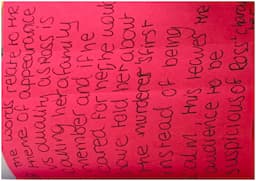 words relate to the
theme of appearance
is duality as Ross is
calling her a family
member and if he
cared for her, he would
have told her about
the murders first
instead of being
calm this leaves the
audience to be
suspicious of Ross'